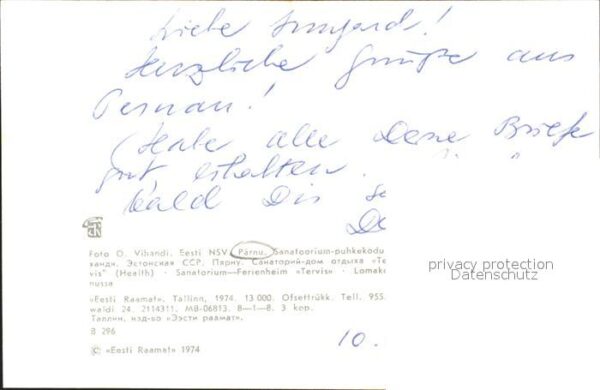 Liebe Irmgard!
Herzliche Grüße aus
Pernau!
Habe alle Deine Briefe
gut erhalten.
bald Dir
De
Foto O. Vihandi. Eesti NSV. Pärnu. Sanatoorium-puhkekodu
ханди. Эстонская ССР. Пярну. Санаторий-дом отдыха «Te
vis” (Health) · Sanatorium—Ferienheim «Tervis» · Lomako
nussa
«Eesti Raamat». Tallinn, 1974. 13 000. Ofsettrükk. Tell. 955.
waldi 24. 2114311. MB-06813. 8—1—8. 3 kop.
Таллин, изд-во «Ээсти раамат».
B 296
© «Eesti Raamat» 1974
10.
privacy protection
Datenschutz